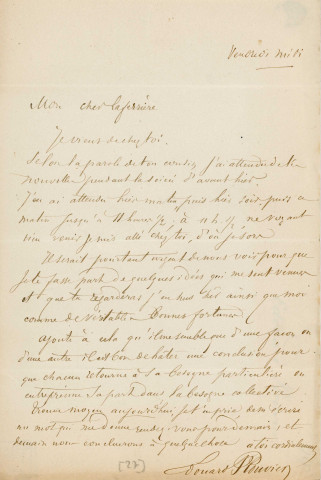 Vendredi midi
Mon cher Laferrière
Je viens de chez toi.
Selon la parole de ton j'ai attendu de tes
nouvelles pendant la soirée d'avant hier.
J'en ai attendu hier matin puis hier soir puis ce
matin jusqu'à 11 heures ½. à 11 h ½ ne voyant
rien venir je suis allé chez toi, d'où je sors
Il serait pourtant urgent de nous voir pour que
je te fasse part de quelques idées qui me sont venues
et que tu regarderas j'en suis sûr ainsi que moi
comme de véritables bonnes fortunes
ajoute à cela qu'il me semble que d'une façon ou
d'une autre il est bon de hater une conclusion pour
que chacun retourne à sa besogne particulière ou
entreprenne sa part dans la besogne collective
Trouve moyen aujourd'hui je t'en prie de m'écrire
un mot qui me donne rendez-vous pour demain; et
demain nous conclurons à quelque chose à toi cordialement
Edouard Plouvier
[27]